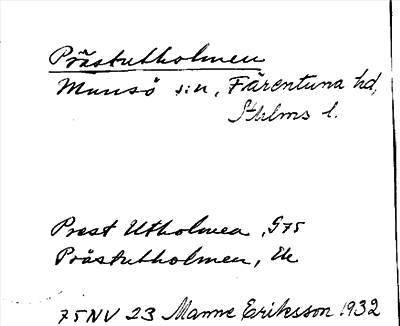 Prästutholmen
Munsö s:n, Färentuna hd,
Sthlms l.
Prest Utholmen, G75
Prästutholmen, Ek
75NV 23 Manne Eriksson 1932